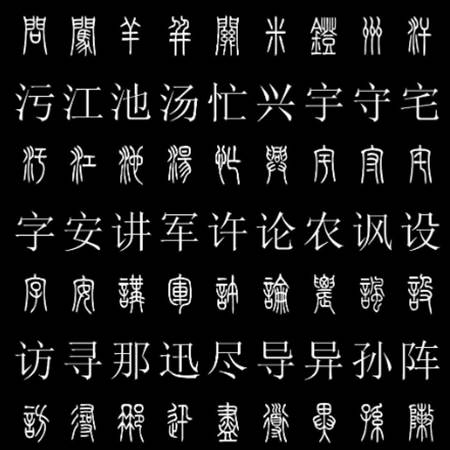 問闖羊并關米鐙州汗
污江池汤忙兴宇守宅
汙江池湯忙興宇守宅
字安讲军许论农讽设
字安講軍許論農諷設
访寻那迅尽导异孙阵
訪尋那迅盡導異孫陳